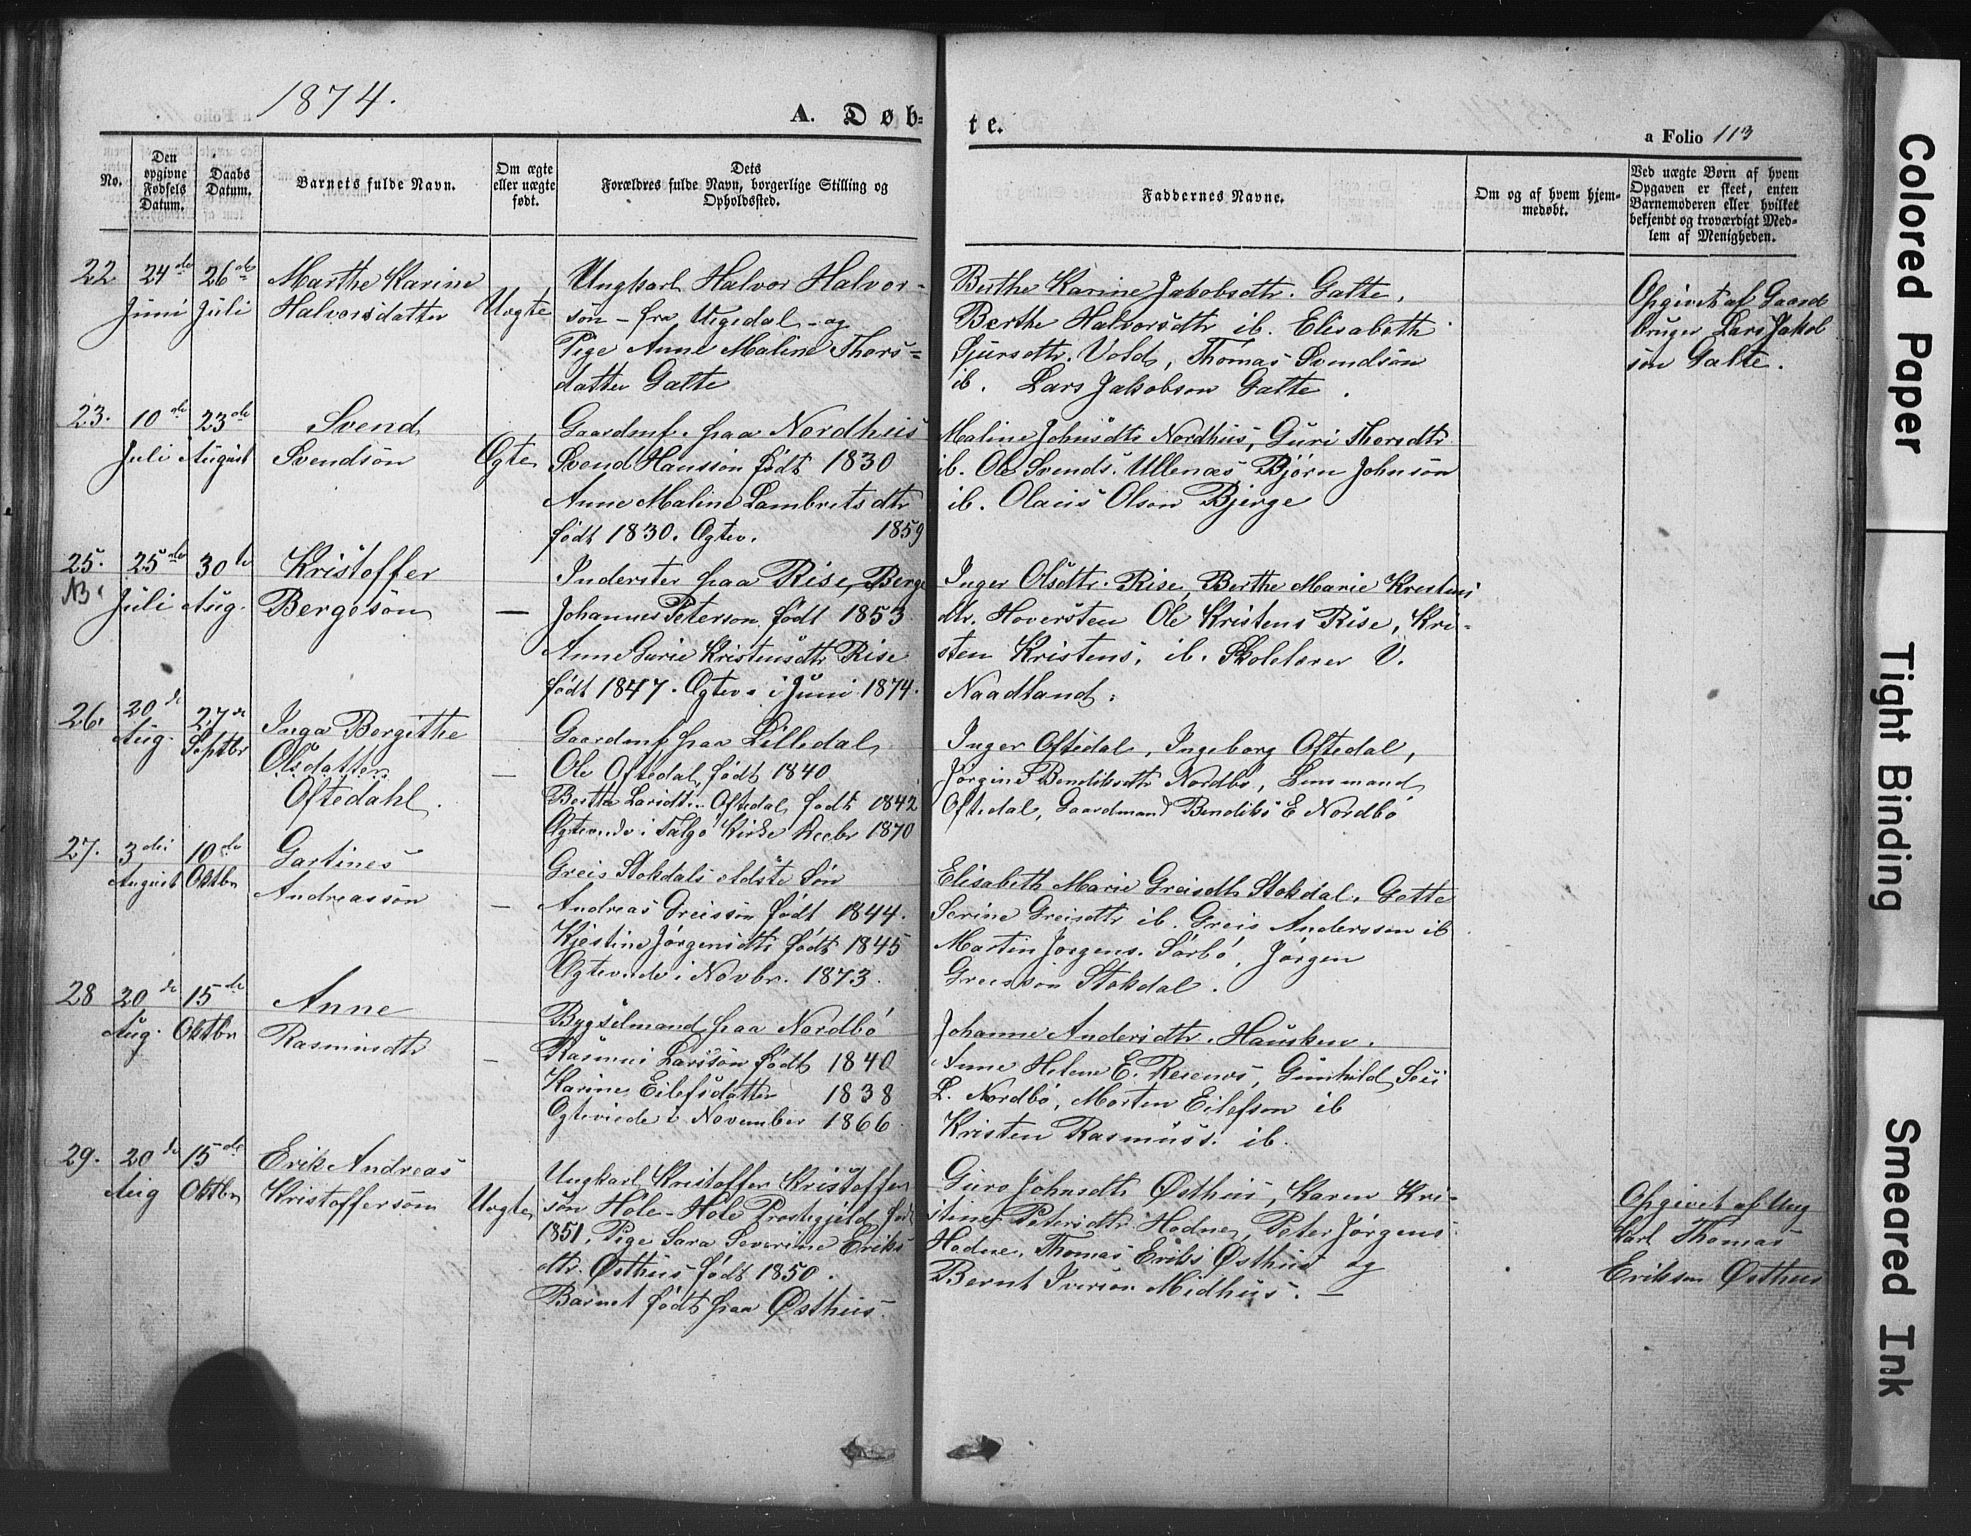 1874.
A. Døb-
te.
a Folio 113
No.
Den opgivne Fødsels Datum.
Daabs Datum.
Barnets fulde Navn.
Om ægte eller uægte født.
Dets Forældres fulde Navn, borgerlige Stilling og Opholdssted.
Faddernes Navne.
Om og af hvem hjemmedøbt.
Ved uægte Børn af hvem Opgaven er skeet, enten Barnemoderen eller hvilket bekjendt og troværdigt Medlem af Menigheden.
22 24de Juni 26de Juli
Marthe Karine
Halvorsdatter
Uægte
Ungkarl Halvor Halvor-
søn - fra Vegedal - og
Pige Anne Maline Thors-
datter Galte
Berthe Karine Jakobsdtr. Galte,
Berthe Halvorsdtr ib. Elisabeth
Sjursdtr. Vold, Thomas Svendsøn
ib. Lars Jakobsøn Galte.
Opgivet af Gaard
bruger Lars Jakob
søn Galte.
23. 10de Juli 23de August
Svend
Svendsøn
Ægte
Gaardmd. paa Nordhus
Svend Hanssøn født 1830
Anne Maline Lambretsdtr
født 1830. Ægtev. 1859
Maline Johnsdtr Nordhus, Guri Thorsdtr
ib. Ole Svends. Ullenæs Bjørn Johnsøn
ib. Olaus Olson Bjerge
25. NB. 25de Juli 30te Aug.
Kristoffer
Bergesøn
—
Inderster paa Rise, Berge
Johannes Peterson født 1853
Anne Gurie Kristensdtr Rise
født 1847. Ægtev. i Juni 1874.
Inger Olsdtr. Rise, Berthe Marie Kristens
dtr. Hoversten Ole Kristens Rise, Kri-
sten Kristens. ib. Skolelærer V.
Naadland.
26. 20de Aug. 27de Septbr
Inga Bergithe
Olsdatter
Oftedahl.
—
Gaardmd paa Lilledal
Ole Oftedal født 1840
Berthe Larsdtr. Oftedal født 1842
Ægteviede i Talgø Kirke Decbr 1870
Inger Oftedal, Ingeborg Oftedal,
Jørgine Bendiksdtr Nordbø, Lensmand
Oftedal, Gaardmand Bendiks E Nordbø
27. 3die August 10de Oktbr
Gartines
Andreassøn
—
Greis Stokdals eldste Søn
Andreas Greissøn født 1844.
Kjestine Jørgensdtr født 1845
Ægteviede i Novbr. 1873.
Elisabeth Marie Greisdtr Stokdal, Gette
Serine Greisdtr ib. Greis Anderssøn ib
Martin Jørgens. Sørbø, Jørgen
Greissøn Stokdal.
28 20de Aug. 15de Oktbr
Anne
Rasmusdtr
—
Bygselmand paa Nordbø
Rasmus Larssøn født 1840
Karine Eilefsdatter 1838
Ægteviede i November 1866
Johanne Andersdtr. Hausken.
Helene E. Gunhild
L. Nordbø, Morten Eilefson ib
Kristen Rasmuss. ib.
29. 20de Aug 15de Oktbr
Erik Andreas
Kristoffersøn
Uægte
Ungkarl Kristoffer Kristoffer
søn Hole - Hole Prestegjeld født
1851. Pige Sara Severine Eriks
dtr. Østhus født 1850.
Barnet født paa Østhus.
Guro Johnsdtr Østhus, Karen Kri-
stine Petersdtr Hodne, Peter Jørgens
Hodne, Thomas Eriks Østhus og
Bernt Iverson Midhus. —
Opgivet af Ung
karl Thomas
Erikson Østhus
Colored Paper
Tight Binding
Smeared Ink